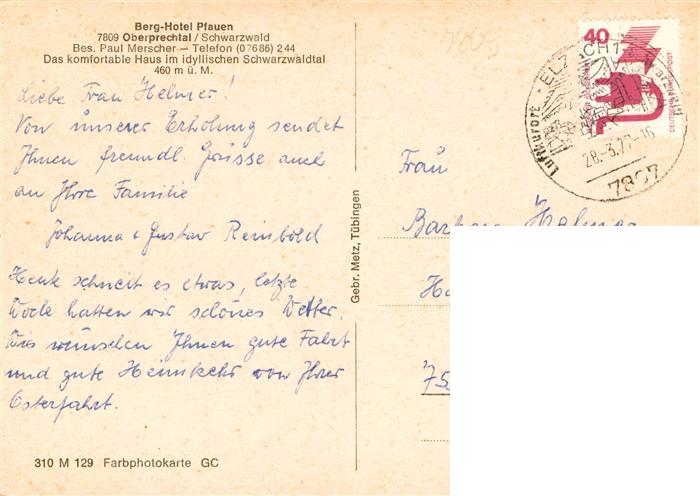 Berg-Hotel Pfauen
7809 Oberprechtal / Schwarzwald
Bes. Paul Merscher – Telefon (07686) 244
Das komfortable Haus im idyllischen Schwarzwaldtal
460 m ü. M.
Liebe Frau Helmer!
Von unserer Erholung sendet
Ihnen freundl. Grüsse auch
an Ihre Familie
Johanna + Gustav Reinbold
Heute schneit es etwas, letzte
Woche hatten wir schönes Wetter.
Wir wünschen Ihnen gute Fahrt
und gute Heimkehr von Ihrer
Osterfahrt.
310 M 129 Farbphotokarte GC
Gebr. Metz, Tübingen
7809
40
DEUTSCHE BUNDESPOST
Luftkurort · ELZACH
28.-3.77-16
7807
Frau
Barbara Helmer
75